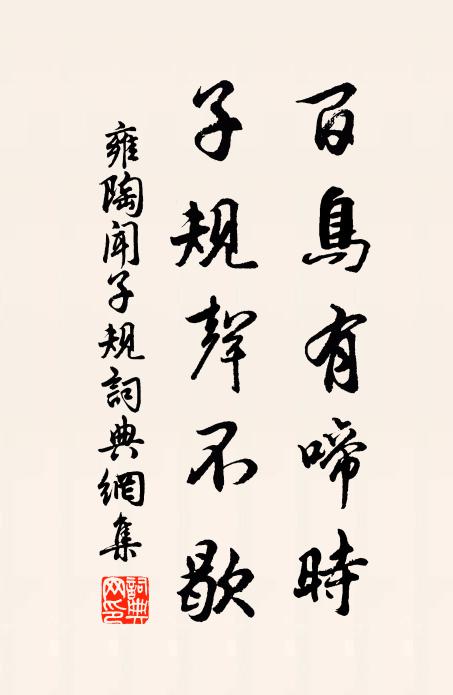 百鳥有啼時
子規聲不歇
雍陶聞子規詞典網集
詞典網印